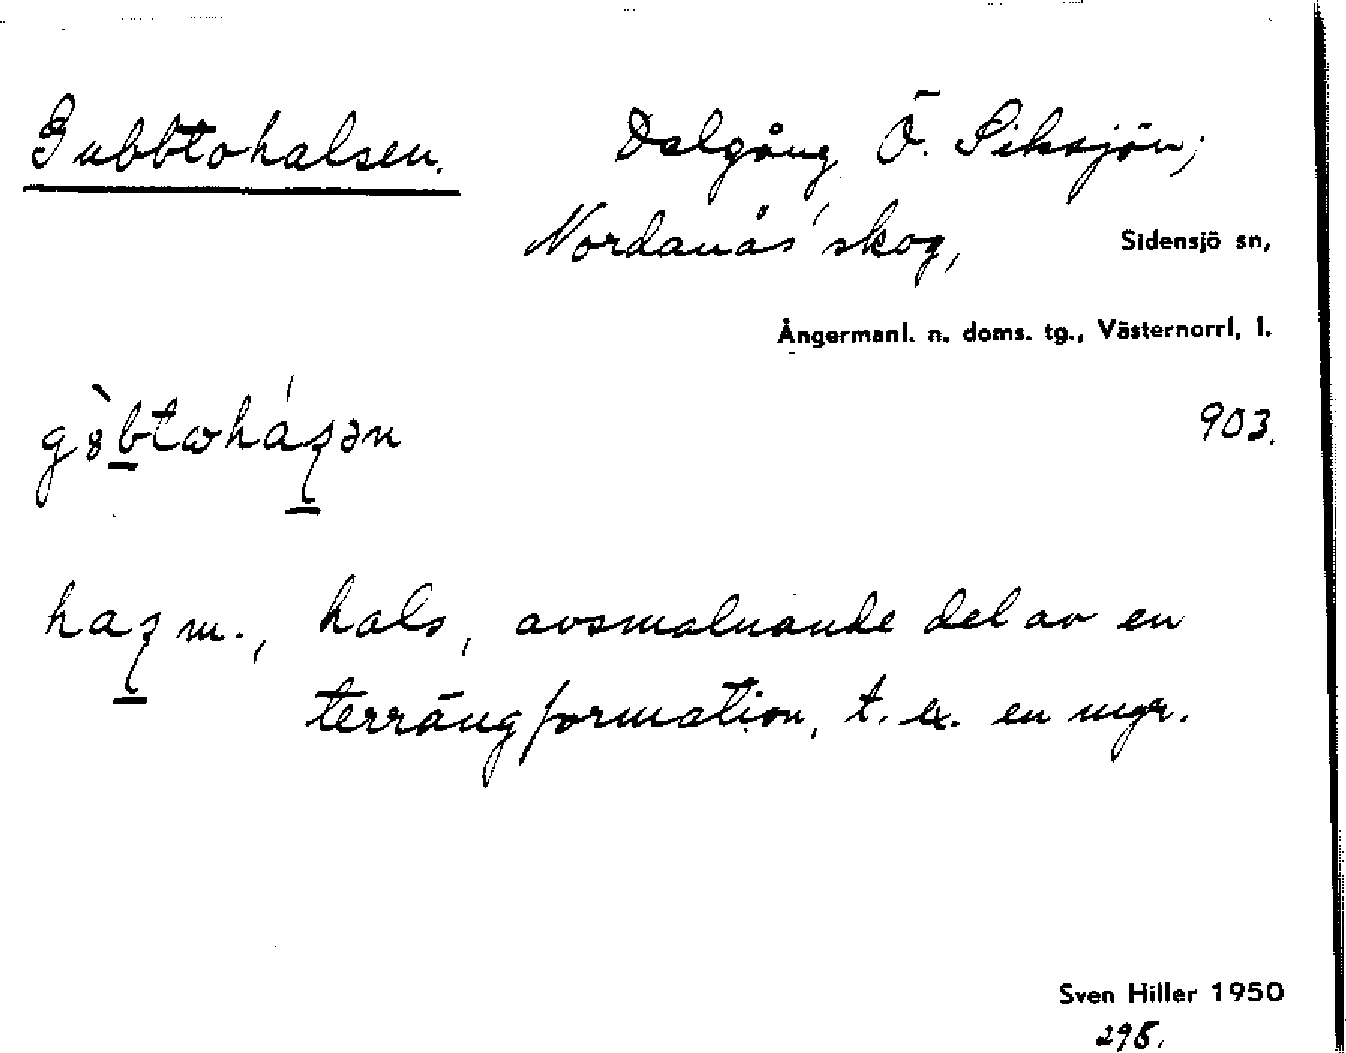 Gubbtohalsen. Dalgång Ö. Siksjön;
Nordanås' skog, Sidensjö sn,
Ångermanl. n. doms. tg., Västernorrl. l.
903.
m., hals, avsmalnande del av en
terrängformation, t. ex. en myr.
Sven Hiller 1950
295.